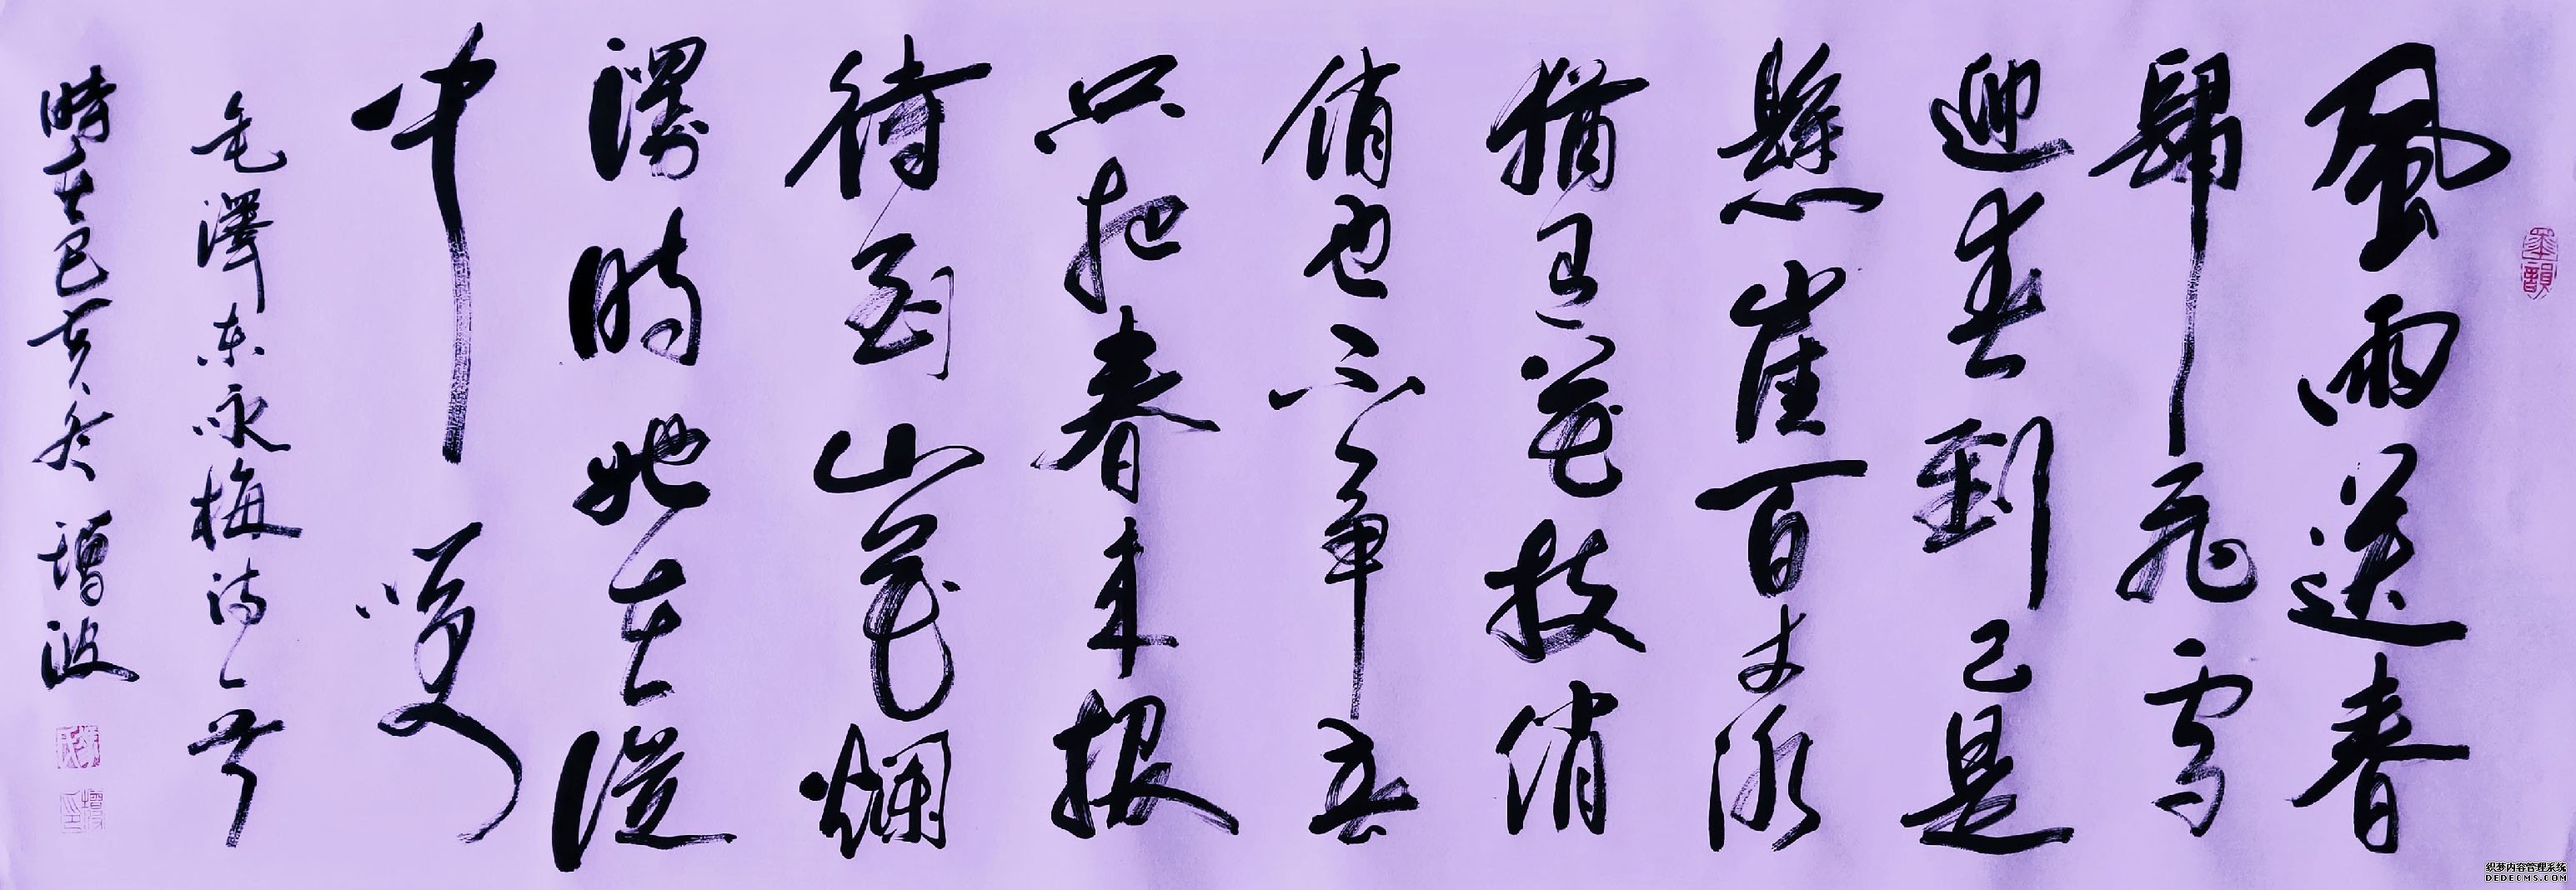 墨韻
風雨送春
歸飛雪
迎春到已是
懸崖百丈冰
猶有花枝俏
俏也不争春
只把春来报
待到山花爛
漫時她在從
中笑
毛澤东咏梅诗一首
時在己亥冬 增波
织梦内容管理系统
DEDECMS.COM